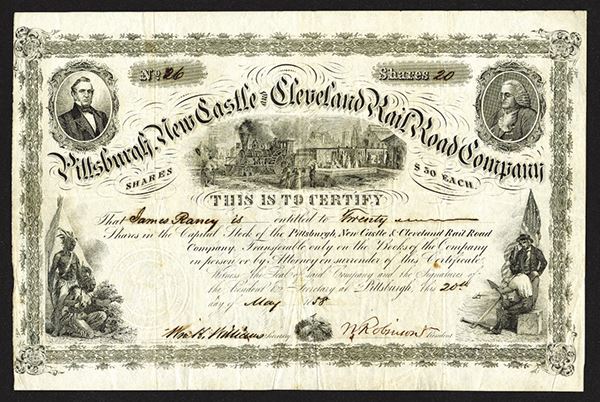 No 26
Shares 20
Pittsburgh, New Castle and Cleveland Rail Road Company
SHARES $50 EACH
THIS IS TO CERTIFY
That James Raney is entitled to Twenty
Shares in the Capital Stock of the Pittsburgh, New Castle & Cleveland Rail Road
Company, Transferable only on the Books of the Company
in person or by Attorney on surrender of this Certificate
Witness the Seal of said Company and the Signatures of
the President & Secretary at Pittsburgh, this 20th
day of May 1858
Wm. K. Williams Secretary
N. Robinson President